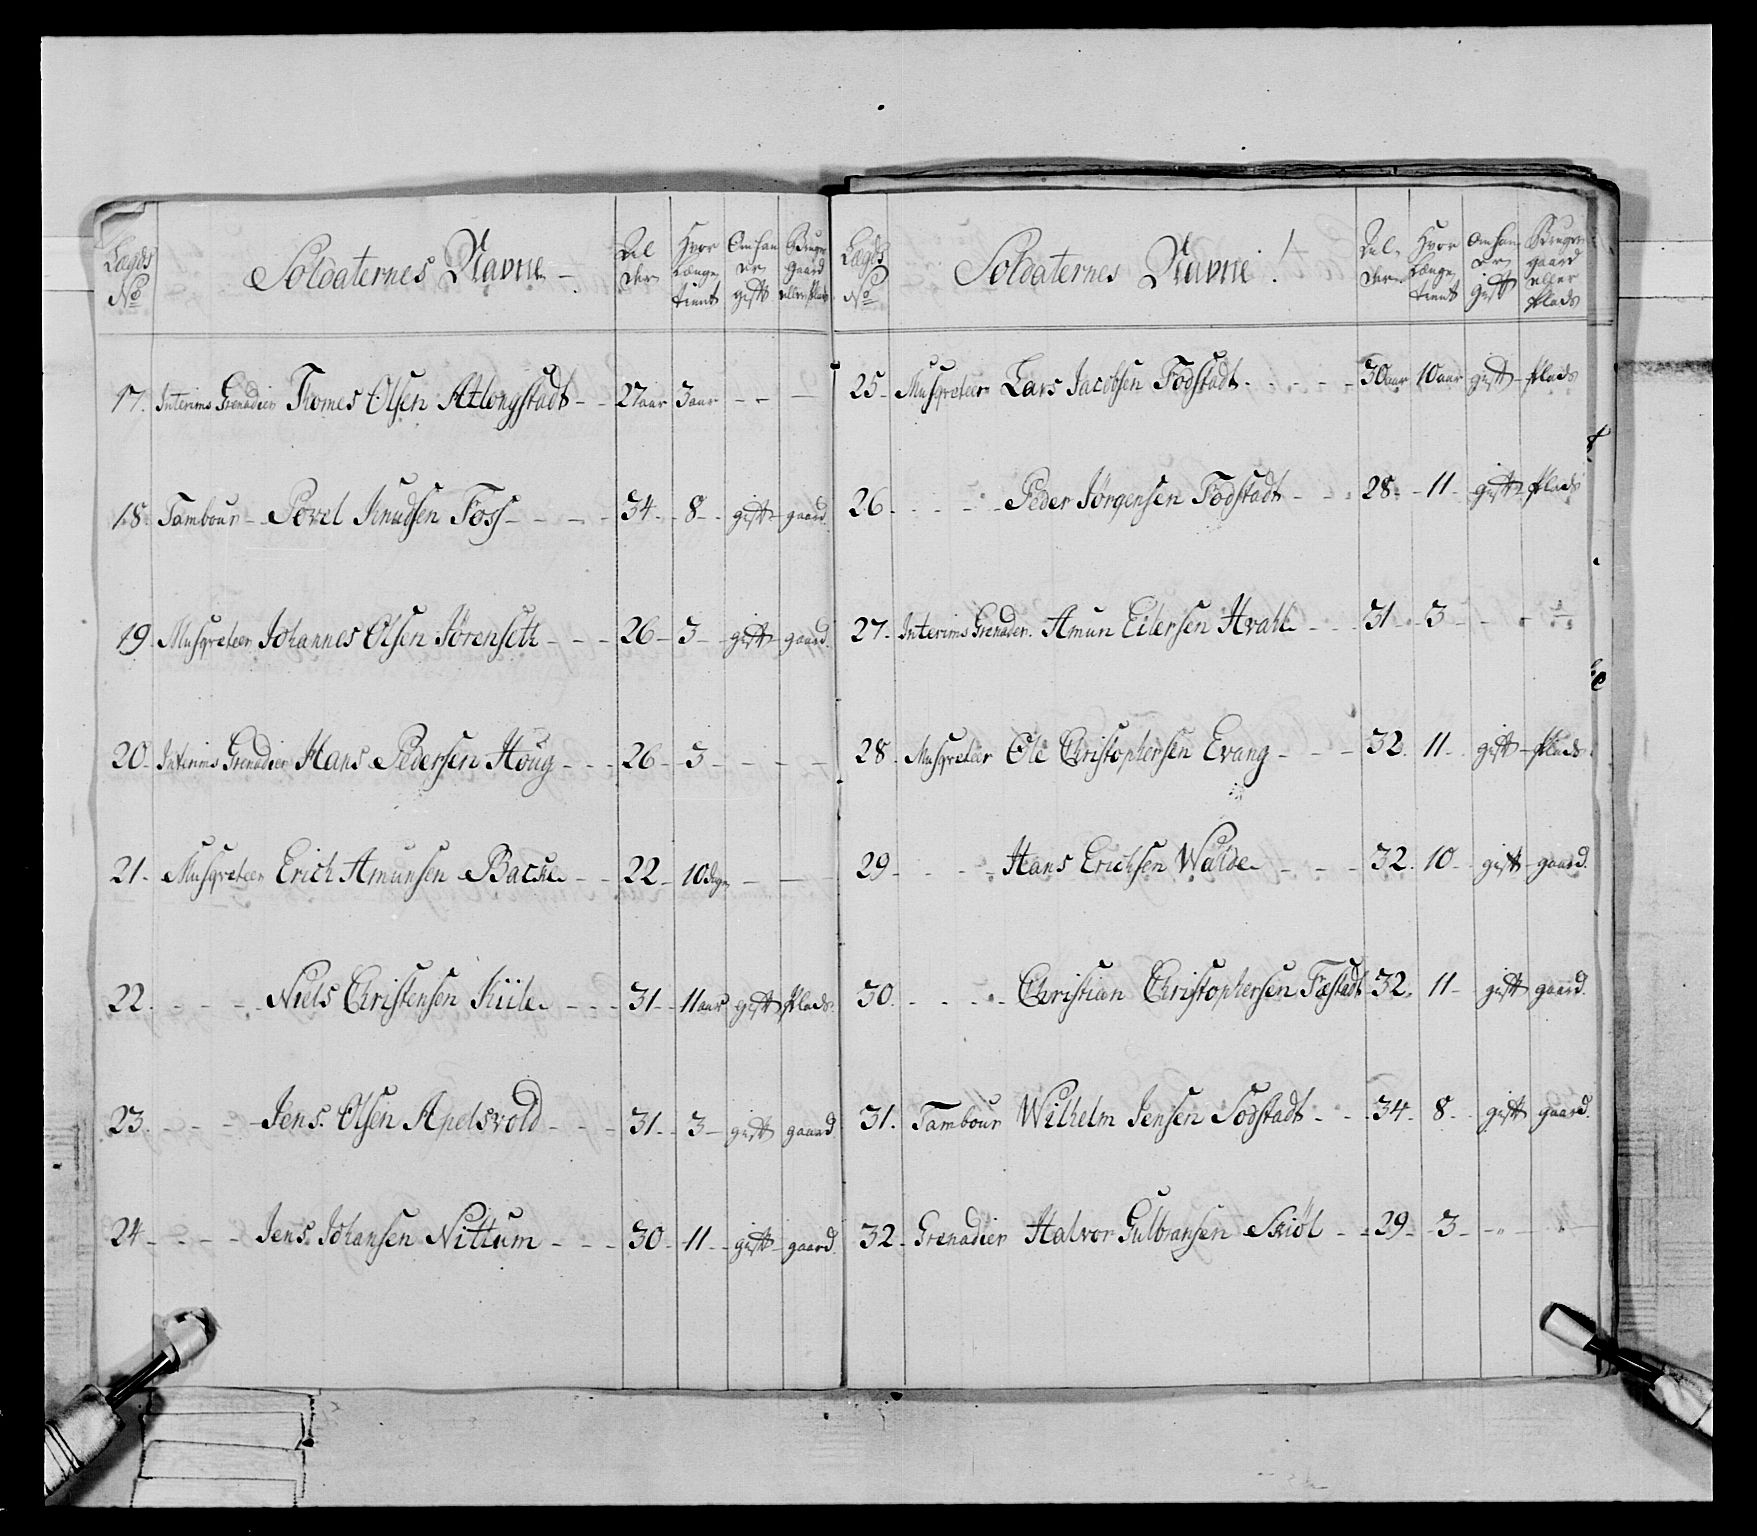 Lægds No | Soldaternes Navne | Alder | Hvor Længe tient | Om han er gift | Bruger gaard eller Plads
17. Interims Grenadeer Thomes Olsen Atlongstadt - - 27 aar 3 aar - - -
18. Tambour - Povel Knudsen Foss - - - - 34 - 8 - gift - gaard.
19. Musqveteer Johannes Olsen Sørenseth - - - 26 - 3 - gift gaard.
20. Interims Grenadeer Hans Pedersen Houg - - - 26 - 3 - - - -
21. Musqveteer Erich Amunsen Backe - - 22 - 10 dage - - -
22. - - - - Niels Christensen Kiile - - - 31 - 11 aar gift Plads.
23. - - - - Jens Olsen Apelsvold - - - 31 - 3 - gift gaard
24. - - - - Jens Johansen Nittum - - - 30 - 11 - gift - gaard.
Lægds No | Soldaternes Navne | Alder | Hvor Længe tient | Om han er gift | Bruger gaard eller Plads
25. Musqveteer Lars Jacobsen Fodstadt - - - - 30 aar 10 aar gift - Plads
26. - - - - Peder Jørgensen Fodstadt - - 28 - 11 - gift Plads
27. Interims Grenadeer Amun Eilersen Hvahl - - - 31 - 3 - - - -
28. Musqveteer Ole Christophersen Evang - - - 32. 11 - gift - Plads.
29. - - - - Hans Erichsen Walde - - - 32. 10 - gift - gaard.
30. - - - - Christian Christophersen Fæstadt 32. 11 - gift gaard.
31. Tambour Wilhelm Jensen Sodstadt - - 34 - 8 - gift gaard.
32. Grenadier Halvor Gulbransen Skiøl - - 29 - 3 - - -